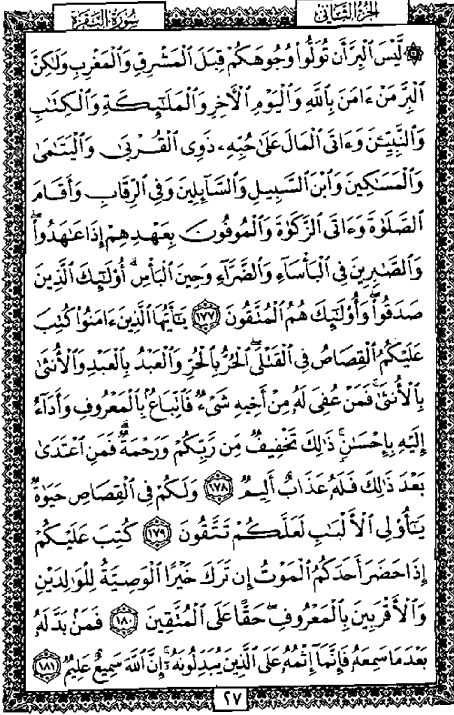 الجزء الثاني
سورة البقرة
۞ لَّيْسَ ٱلْبِرَّ أَن تُوَلُّوا۟ وُجُوهَكُمْ قِبَلَ ٱلْمَشْرِقِ وَٱلْمَغْرِبِ وَلَٰكِنَّ
ٱلْبِرَّ مَنْ ءَامَنَ بِٱللَّهِ وَٱلْيَوْمِ ٱلْأَخِرِ وَٱلْمَلَٰٓئِكَةِ وَٱلْكِتَٰبِ
وَٱلنَّبِيِّۦنَ وَءَاتَى ٱلْمَالَ عَلَىٰ حُبِّهِۦ ذَوِى ٱلْقُرْبَىٰ وَٱلْيَتَٰمَىٰ
وَٱلْمَسَٰكِينَ وَٱبْنَ ٱلسَّبِيلِ وَٱلسَّآئِلِينَ وَفِى ٱلرِّقَابِ وَأَقَامَ
ٱلصَّلَوٰةَ وَءَاتَى ٱلزَّكَوٰةَ وَٱلْمُوفُونَ بِعَهْدِهِمْ إِذَا عَٰهَدُوا۟ۖ
وَٱلصَّٰبِرِينَ فِى ٱلْبَأْسَآءِ وَٱلضَّرَّآءِ وَحِينَ ٱلْبَأْسِۗ أُو۟لَٰٓئِكَ ٱلَّذِينَ
صَدَقُوا۟ۖ وَأُو۟لَٰٓئِكَ هُمُ ٱلْمُتَّقُونَ ١٧٧ يَٰٓأَيُّهَا ٱلَّذِينَ ءَامَنُوا۟ كُتِبَ
عَلَيْكُمُ ٱلْقِصَاصُ فِى ٱلْقَتْلَىۖ ٱلْحُرُّ بِٱلْحُرِّ وَٱلْعَبْدُ بِٱلْعَبْدِ وَٱلْأُنثَىٰ
بِٱلْأُنثَىٰۚ فَمَنْ عُفِىَ لَهُۥ مِنْ أَخِيهِ شَىْءٌ فَٱتِّبَاعٌۢ بِٱلْمَعْرُوفِ وَأَدَآءٌ
إِلَيْهِ بِإِحْسَٰنٍۗ ذَٰلِكَ تَخْفِيفٌ مِّن رَّبِّكُمْ وَرَحْمَةٌۗ فَمَنِ ٱعْتَدَىٰ
بَعْدَ ذَٰلِكَ فَلَهُۥ عَذَابٌ أَلِيمٌ ١٧٨ وَلَكُمْ فِى ٱلْقِصَاصِ حَيَوٰةٌ
يَٰٓأُو۟لِى ٱلْأَلْبَٰبِ لَعَلَّكُمْ تَتَّقُونَ ١٧٩ كُتِبَ عَلَيْكُمْ
إِذَا حَضَرَ أَحَدَكُمُ ٱلْمَوْتُ إِن تَرَكَ خَيْرًا ٱلْوَصِيَّةُ لِلْوَٰلِدَيْنِ
وَٱلْأَقْرَبِينَ بِٱلْمَعْرُوفِۖ حَقًّا عَلَى ٱلْمُتَّقِينَ ١٨٠ فَمَنۢ بَدَّلَهُۥ
بَعْدَ مَا سَمِعَهُۥ فَإِنَّمَآ إِثْمُهُۥ عَلَى ٱلَّذِينَ يُبَدِّلُونَهُۥٓۚ إِنَّ ٱللَّهَ سَمِيعٌ عَلِيمٌ ١٨١
٢٧